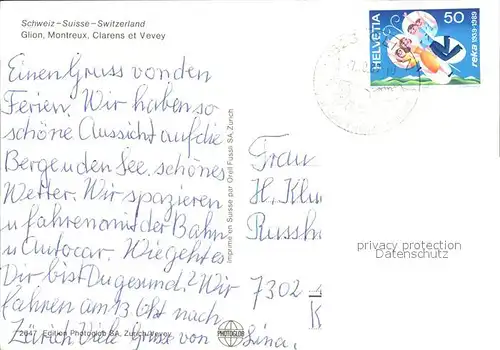 Schweiz – Suisse – Switzerland
Glion, Montreux, Clarens et Vevey
HELVETIA 50
reka 1939-1989
Einen Gruss von den
Ferien. Wir haben so
schöne Aussicht auf die
Berge u den See. schönes
Wetter. Wir spazieren
u fahren mit der Bahn
u Autocar. Wie geht es
Dir. bist Du gesund? Wir
fahren am 13. Okt nach
Zürich Viele Gruss von Lina.
2647 Edition Photoglob SA, Zurich/Vevey
Imprimé en Suisse par Orell Füssli SA, Zurich
PHOTOGLOB
Frau
H. Klu
Russh
7302
K
privacy protection
Datenschutz